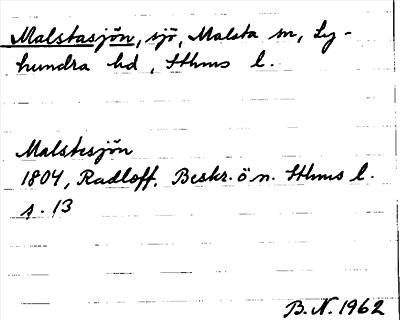 Malstasjön, sjö, Malsta sn, Ly-
hundra hd, Sthms l.
Malstesjön
1804, Radloff. Beskr. ö n. Sthms l.
s. 13
B. N. 1962